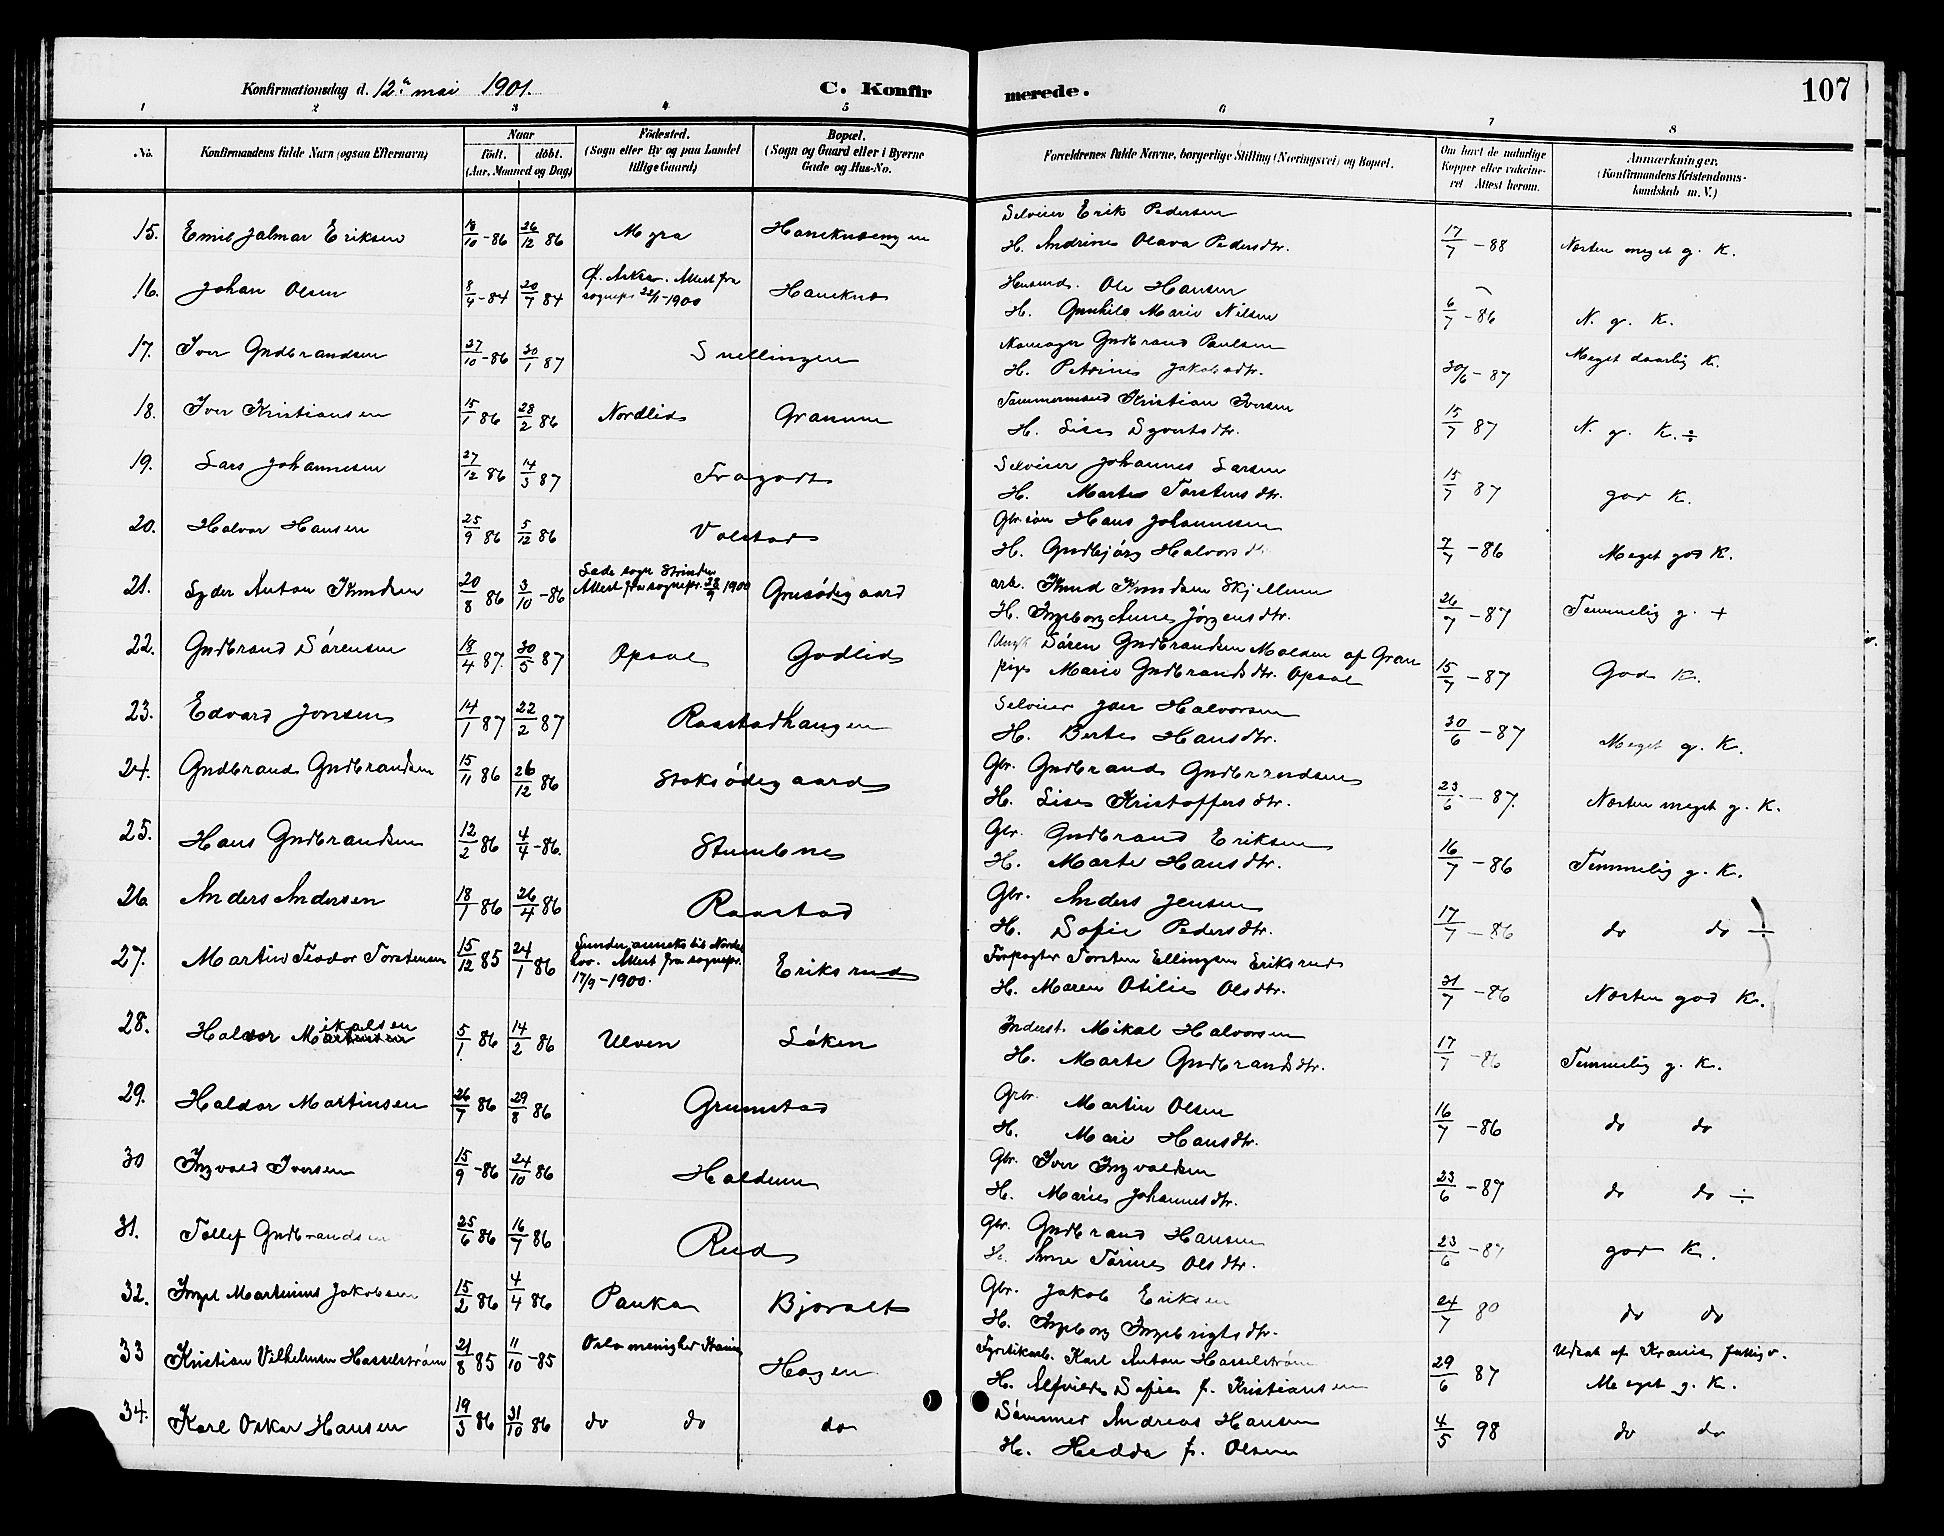 Konfirmationsdag d. 12te mai 1901. C. Konfirmerede. 107
1 2 3 4 5 6 7 8
No. Konfirmandens fulde Navn (ogsaa Efternavn) Naar født. døbt. (Aar, Maaned og Dag) Fødested. (Sogn eller By og paa Landet tillige Gaard) Bopæl. (Sogn og Gaard eller i Byerne Gade og Hus-No. Forældrenes fulde Navne, borgerlige Stilling (Næringsvei) og Bopæl. Om havt de naturlige Kopper eller vakcineret Attest herom. Anmærkninger. (Konfirmandens Kristendomskundskab m. V.)
15. Emil Jalmar Eriksen 18/10 - 86 26/12 86 Myra Haneknæengen Selveier Erik Pedersen
H. Andrine Olava Pedersdtr. 17/7 - 88 Næsten meget g. K.
16. Johan Olsen 8/4 - 84 20/7 84 Ø. Aker. Attest fra sognepr 22/1-1900 Haneknæ Husmd. Ole Hansen
H. Gunhild Marie Nilsen 6/7 - 86 N. g. K.
17. Iver Gudbrandsen 27/10 - 86 30/1 87 Snellingen Gudbrand Paulsen
H. Petrine Jakobsdtr. 30/6 - 87 Meget daarlig K.
18. Iver Kristiansen 15/1 86 28/2 86 Nordlid Gramm Tømmermand Kristian Iversen
H. Lise Syvertsdtr. 15/7 87 N. g. K. ÷
19. Lars Johannesen 27/12 86 14/3 87 Fragodt Selveier Johannes Larsen
H. Marte Torstensdtr. 15/7 87 god K.
20. Halvor Hansen 25/9 86 5/12 86 Volstad Gbr. søn Hans Johannessen
H. Gudbjørg Halvorsdtr 7/7 - 86 Meget god K.
21. Lyder Anton Knudsen 20/8 86 3/10 - 86 Lade sogn Strinden Attest fra sognepr. 28/9 1900 Grusødegaard arb. Knud Knudsen Skjellum
H. Ingeborg Anne Jørgensdtr. 26/7 - 87 Temmelig g. +
22. Gudbrand Sørensen 18/4 87. 30/5 87 Opsal Godlid Ungk Søren Gudbrandsen Molden af Gran
pige Marie Gudbrandsdtr. Opsal 15/7 - 87 God K.
23. Edvard Jonsen 14/1 87 22/2 87 Raastadhaugen Selveier Joer Halvorsen
H. Berte Hansdtr. 30/6 - 87 Meget g. K.
24. Gudbrand Gudbrandsen 15/11 86 26/12 86 Stoksødegaard Gbr. Gudbrand Gudbrandsen
H. Lise Kristoffersdtr. 23/6 - 87. Næsten meget g. K.
25. Hans Gudbrandsen 12/2 86 4/4 - 86. Stumbne Gbr. Gudbrand Eriksen
H. Marte Hansdtr. 16/7 - 86 Temmelig g. K.
26. Anders Andersen 18/1 86 26/4 86 Raastad Gbr. Anders Jensen
H. Sofie Pedersdtr. 17/7 - 86 do do ÷
27. Martin Teodor Torstensen 15/12 85 24/1 86 Lunder anneks til Norderhov. Attest fra sognepr. 17/9-1900. Eriksrud Forpagter Torsten Ellingsen Eriksrud
H. Maren Otilie Olsdtr. 31/7 - 86 Næsten god K.
28. Haldor Mikalsen 5/1 86 14/2 86 Ulven Løken Inderst. Mikal Halvorsen
H. Marte Gudbrandsdtr. 17/7 - 86 Temmelig g. K.
29. Haldor Martinsen 26/7 86 29/8 86 Grumstad Gbr. Martin Olsen
H. Mari Hansdtr. 16/7 - 86 do do
30 Ingvald Iversen 15/9 - 86 24/10 86 Haldum Gbr. Iver Ingvaldsen
H. Marie Johannesdtr. 23/6 - 87 do do ÷
31. Tollef Gudbrandsen 25/6 86 16/7 86 Rud Gbr. Gudbrand Hansen
H. Anne Torine Olsdtr. 23/6 - 87 god K.
32. Ingel Martinius Jakobsen 15/2 86 4/4 86 Pauka Bjoralt Gbr. Jakob Eriksen
H. Ingeborg Ingebrigtsdtr. 24/7 80 do do
33 Kristian Vilhelmsen Hasselstrøm 21/8 85 11/10 - 85 Oslo menighed Krania Hagen Fyrstikarb. Karl Anton Hasselstrøm
H. Alfvilde Sofie f. Kristiansen 29/6 87 Udsat af Krania fattigv.
Meget g. K.
34. Karl Oskar Hansen 19/3 86 31/10 86 do do do Sømmed Andreas Hansen
H. Hedda f. Olsen 4/5 98 do do